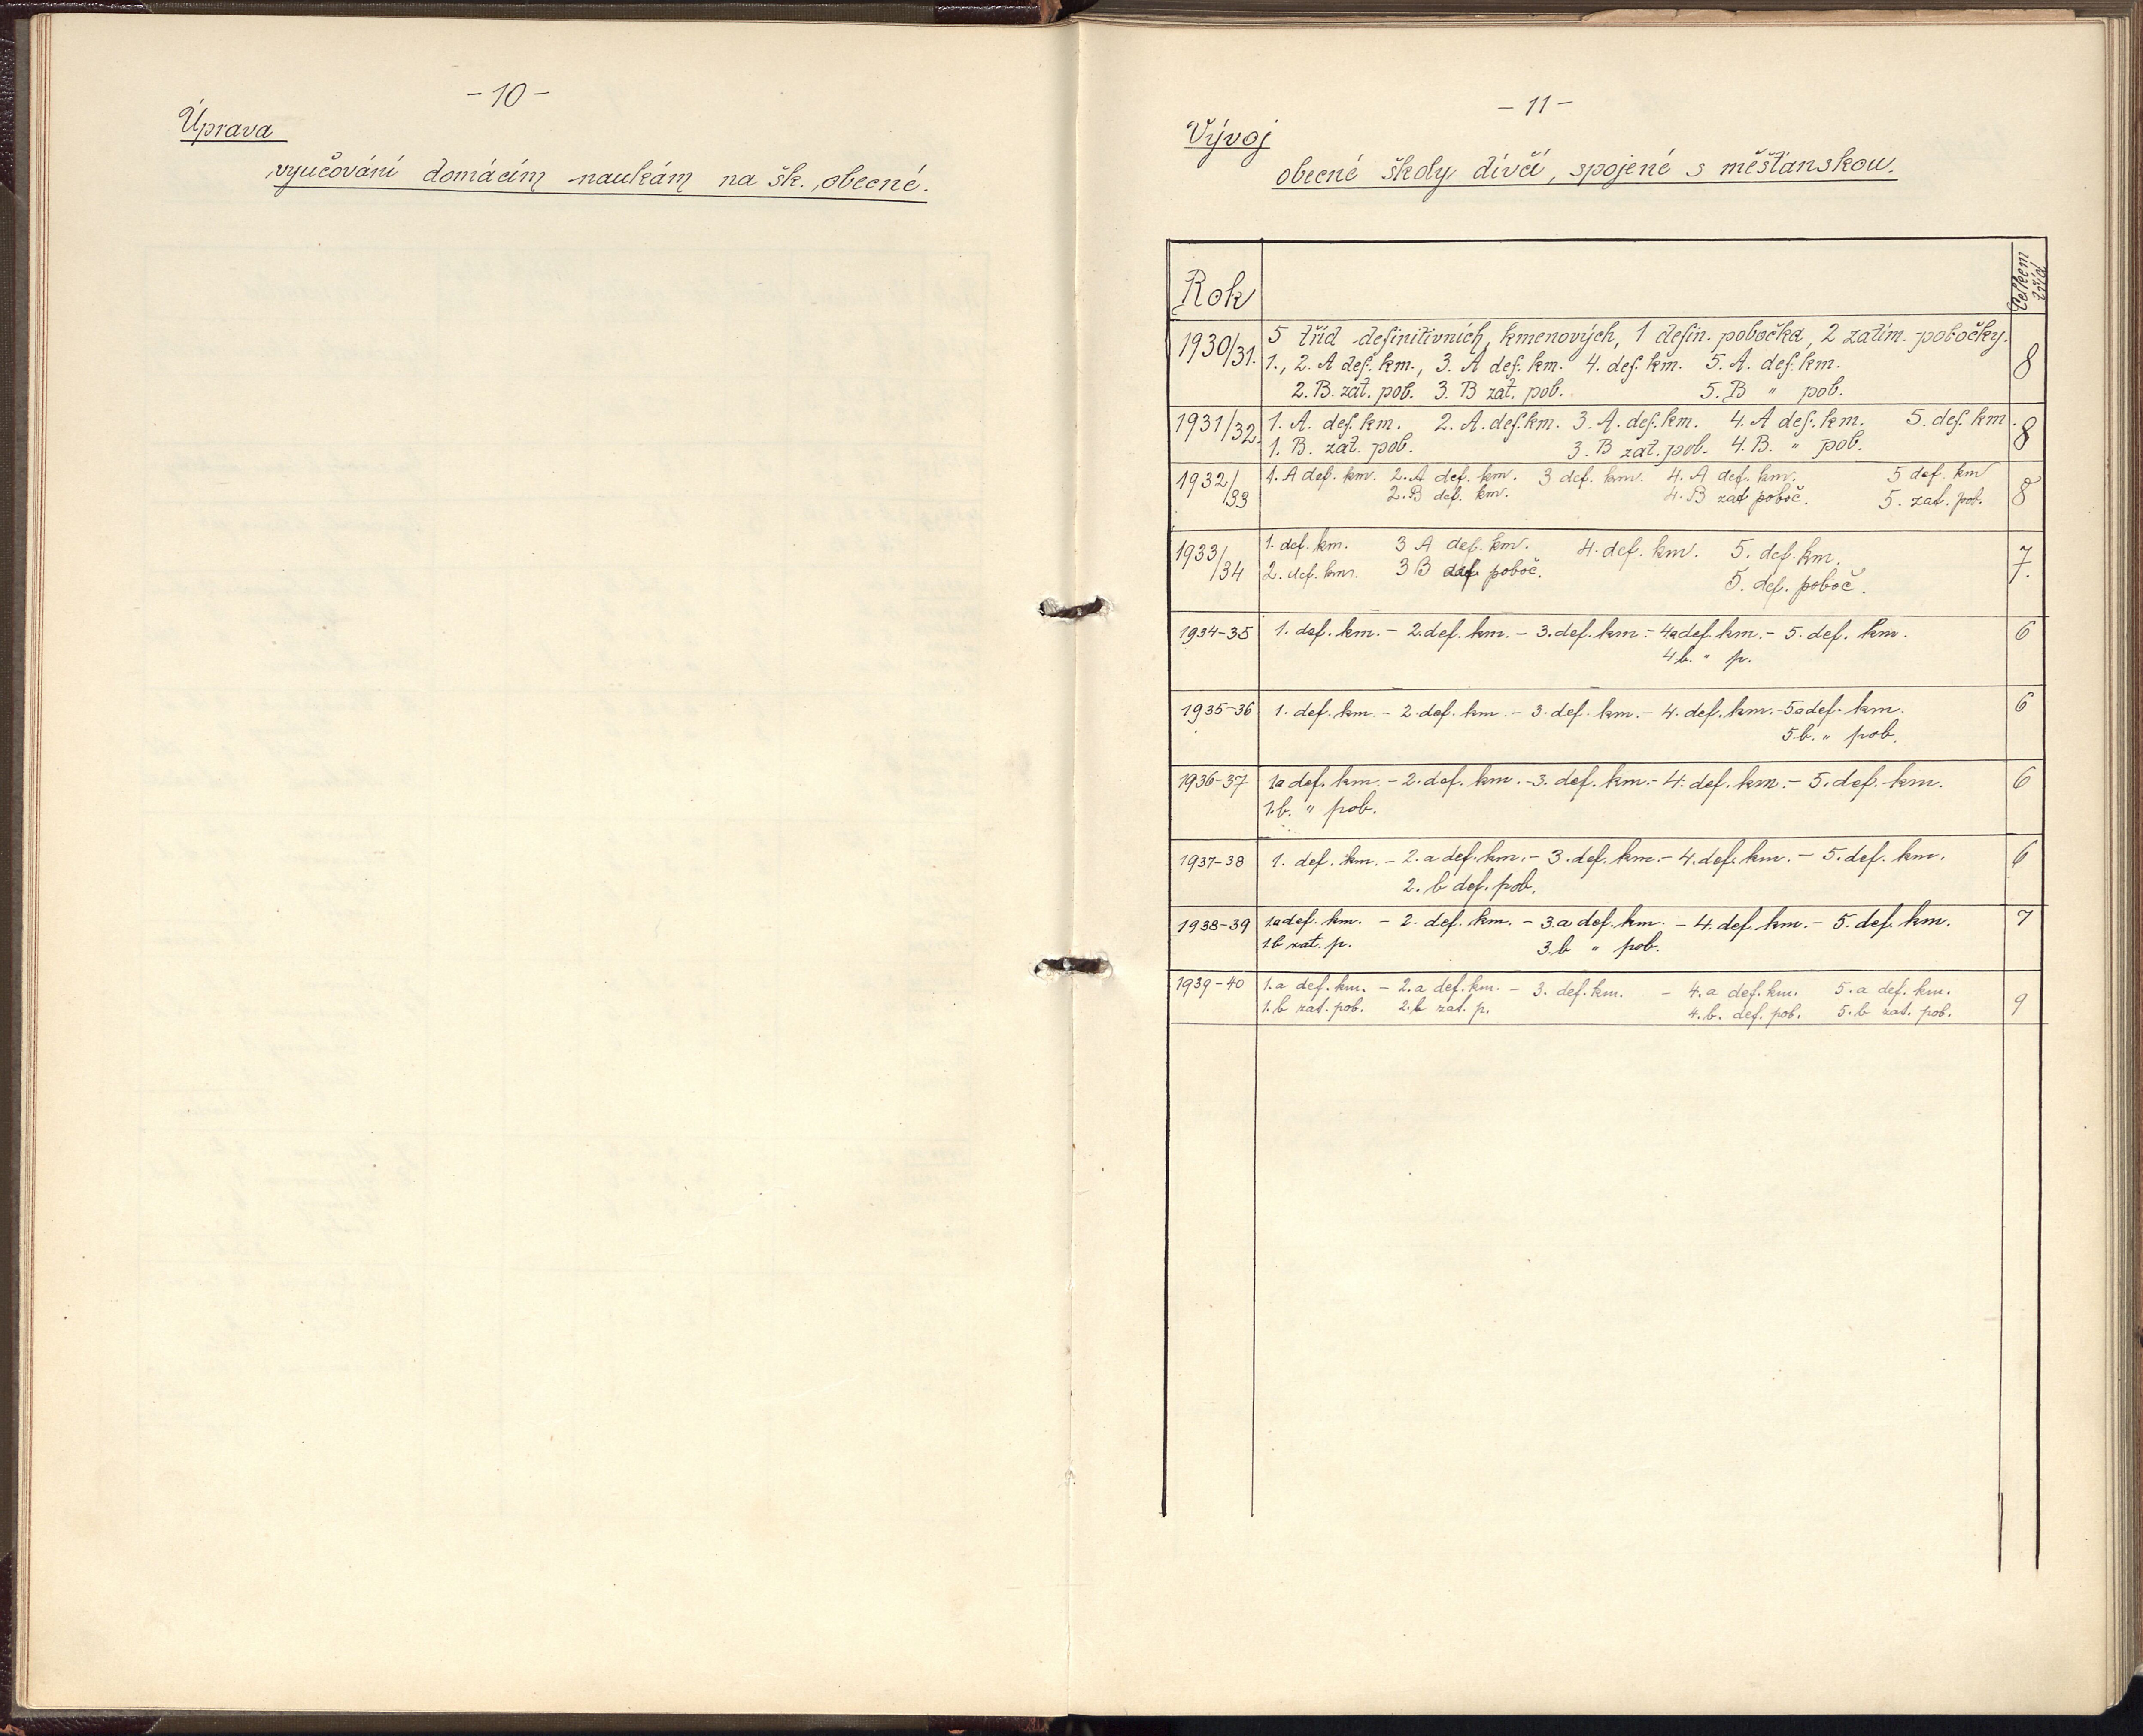 - 10 -
Úprava
vyučování domácím naukám na šk. obecné.
- 11 -
Vývoj
obecné školy dívčí, spojené s měšťanskou.
Rok
Celkem
tříd
1930/31. 5 tříd definitivních, kmenových, 1 defin. pobočka, 2 zatím. pobočky.
1., 2. A def. km., 3. A def. km. 4. def. km. 5. A. def. km. 8
2. B. zat. pob. 3. B zat. pob. 5. B " pob.
1931/32. 1. A. def. km. 2. A. def. km. 3. A. def. km. 4. A def. km. 5. def. km. 8
1. B. zat. pob. 3. B zat. pob. 4. B. " pob.
1932/33 1. A def. km. 2. A def. km. 3 def. km. 4. A def. km. 5 def. km 8
2. B def. km. 4. B zat poboč. 5. zat. pob.
1933/34 1. def. km. 3 A def. km. 4. def. km. 5. def. km. 7.
2. def. km. 3 B def. poboč. 5. def. poboč.
1934-35 1. def. km. - 2. def. km. - 3. def. km. - 4a def. km. - 5. def. km. 6
4b. " p.
1935-36 1. def. km. - 2. def. km. - 3. def. km. - 4. def. km. - 5a def. km. 6
5.b. " pob.
1936-37 1a def. km. - 2. def. km. - 3. def. km. - 4. def. km. - 5. def. km. 6
1.b. " pob.
1937-38 1. def. km. - 2. a def. km. - 3. def. km. - 4. def. km. - 5. def. km. 6
2. b def. pob.
1938-39 1a def. km. - 2. def. km. - 3.a def. km. - 4. def. km. - 5. def. km. 7
1.b zat. p. 3.b " pob.
1939-40 1.a def. km. - 2.a def. km. - 3. def. km. - 4.a def. km. 5.a def. km. 9
1.b zat. pob. 2.b zat. p. 4.b. def. pob. 5.b zat. pob.